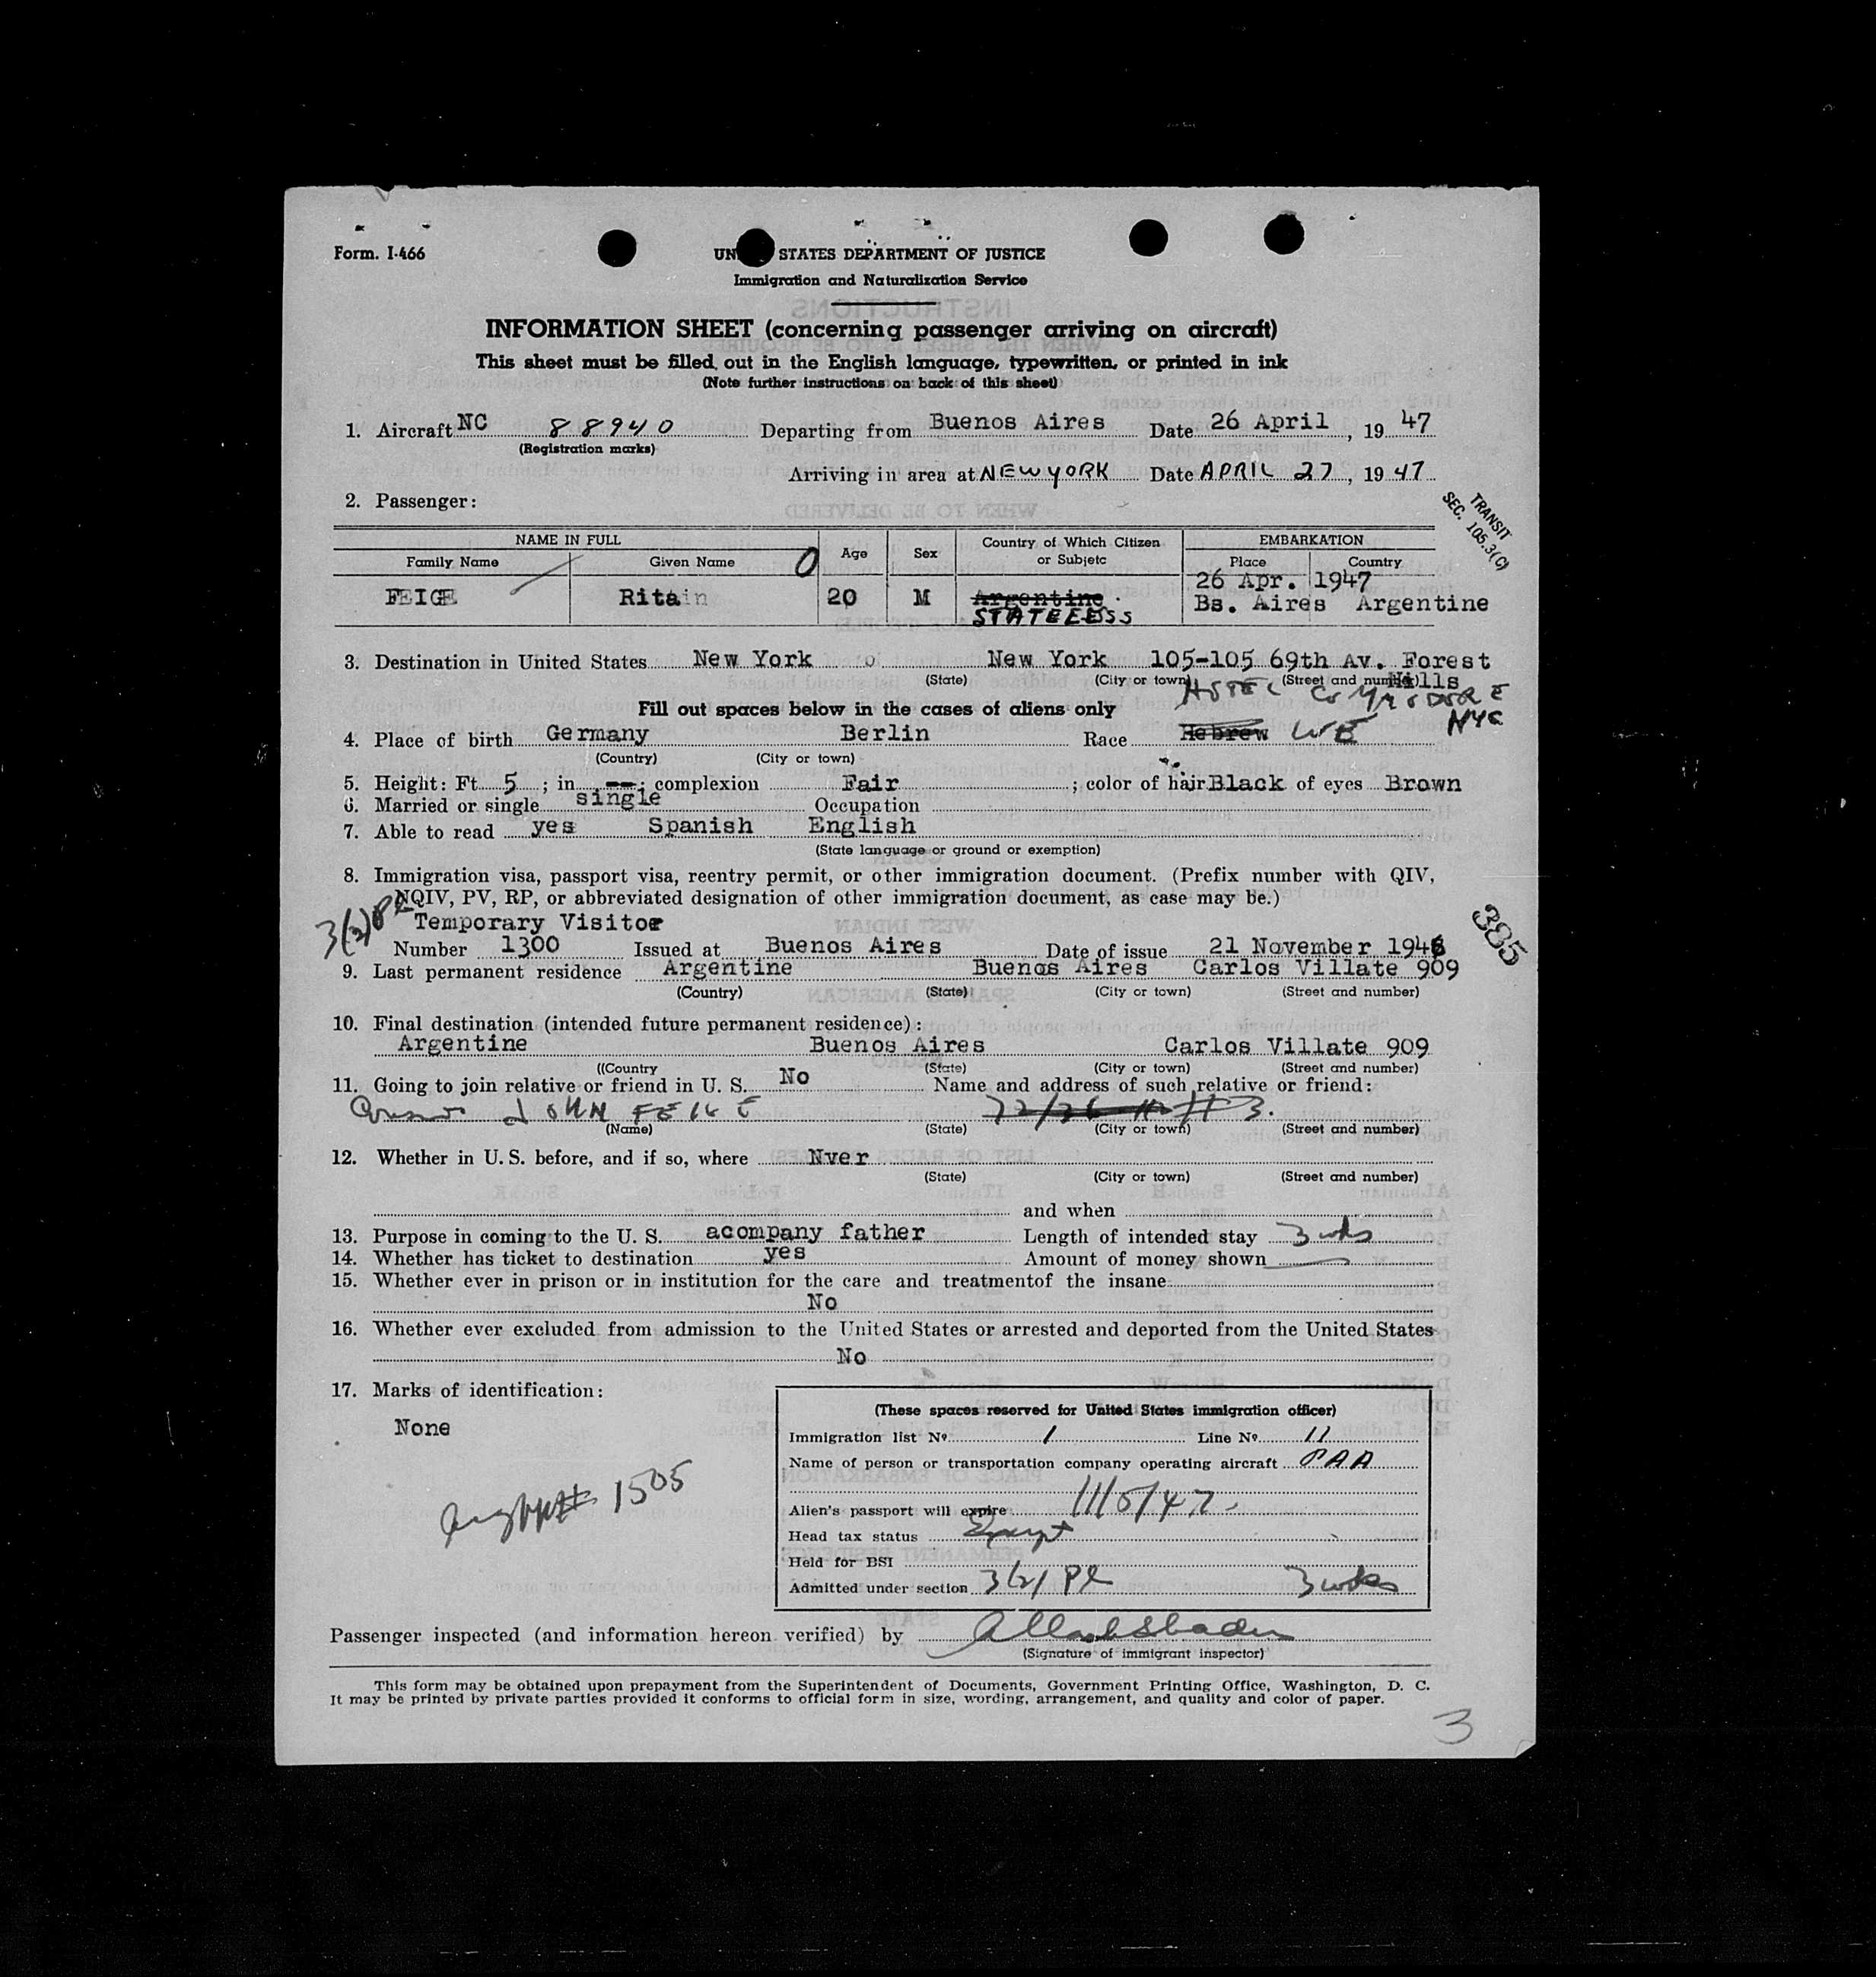 Form. I-466
UN STATES DEPARTMENT OF JUSTICE
Immigration and Naturalization Service
INFORMATION SHEET (concerning passenger arriving on aircraft)
This sheet must be filled out in the English language, typewritten, or printed in ink
(Note further instructions on back of this sheet)
1. Aircraft NC 88940 Departing from Buenos Aires Date 26 April, 19 47
(Registration marks)
Arriving in area at NEW YORK Date APRIL 27, 19 47
TRANSIT
SEC. 105.3(C)
2. Passenger:
NAME IN FULL Age Sex Country of Which Citizen or Subjetc EMBARKATION
Family Name Given Name 0 Place Country
26 Apr. 1947
FEIGE Rita 20 M Argentine Bs. Aires Argentine
STATELESS
3. Destination in United States New York New York 105-105 69th Av. Forest Hills
(State) (City or town) (Street and number)
HOTEL COMMODORE
NYC
Fill out spaces below in the cases of aliens only
4. Place of birth Germany Berlin Race Hebrew
(Country) (City or town)
5. Height: Ft. 5 ; in. -- ; complexion Fair ; color of hair Black of eyes Brown
6. Married or single single Occupation
7. Able to read yes Spanish English
(State language or ground or exemption)
8. Immigration visa, passport visa, reentry permit, or other immigration document. (Prefix number with QIV,
NQIV, PV, RP, or abbreviated designation of other immigration document, as case may be.)
3(2)
Temporary Visitor
385
Number 1300 Issued at Buenos Aires Date of issue 21 November 1946
9. Last permanent residence Argentine Buenos Aires Carlos Villate 909
(Country) (State) (City or town) (Street and number)
10. Final destination (intended future permanent residence):
Argentine Buenos Aires Carlos Villate 909
((Country (State) (City or town) (Street and number)
11. Going to join relative or friend in U. S. No Name and address of such relative or friend:
JOHN FEIGE
(Name) (State) (City or town) (Street and number)
12. Whether in U. S. before, and if so, where Nver
(State) (City or town) (Street and number)
and when
13. Purpose in coming to the U. S. acompany father Length of intended stay 3 wks
14. Whether has ticket to destination yes Amount of money shown
15. Whether ever in prison or in institution for the care and treatmentof the insane
No
16. Whether ever excluded from admission to the United States or arrested and deported from the United States
No
17. Marks of identification:
None
1505
(These spaces reserved for United States immigration officer)
Immigration list Nº 1 Line Nº 11
Name of person or transportation company operating aircraft PAA
Alien's passport will expire 11/5/47
Head tax status Exempt
Held for BSI
Admitted under section 3(2) 3 wks
Passenger inspected (and information hereon verified) by
(Signature of immigrant inspector)
This form may be obtained upon prepayment from the Superintendent of Documents, Government Printing Office, Washington, D. C.
It may be printed by private parties provided it conforms to official form in size, wording, arrangement, and quality and color of paper.
3